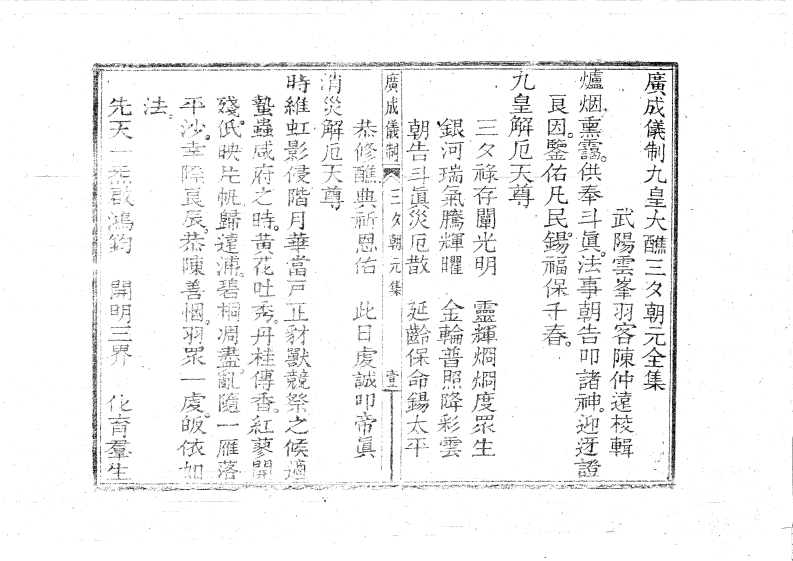 廣成儀制九皇大醮三夕朝元全集
武陽雲峯羽客陳仲遠校輯
爐烟熏靄。供奉斗眞。法事朝告叩諸神。迎迓證
良因。鑒佑凡民。錫福保千春。
九皇解厄天尊
三夕祿存闡光明　靈輝烱烱度眾生
銀河瑞氣騰輝曜　金輪普照降彩雲
朝告斗眞災厄散　延齡保命錫太平
廣成儀制　三夕朝元集　壹
恭修醮典祈恩佑　此日虔誠叩帝眞
消災解厄天尊
時維虹影侵階月華當戸正豺獸競祭之候適
蟄蟲咸府之時。黃花吐秀。丹桂傳香。紅蓼開
殘。低映片帆歸遠浦。碧桐凋盡。亂隨一雁落
平沙。幸際良辰。恭陳善悃。羽眾一虔。皈依如
法。
先天一炁　鴻鈞　開明三界　化育羣生